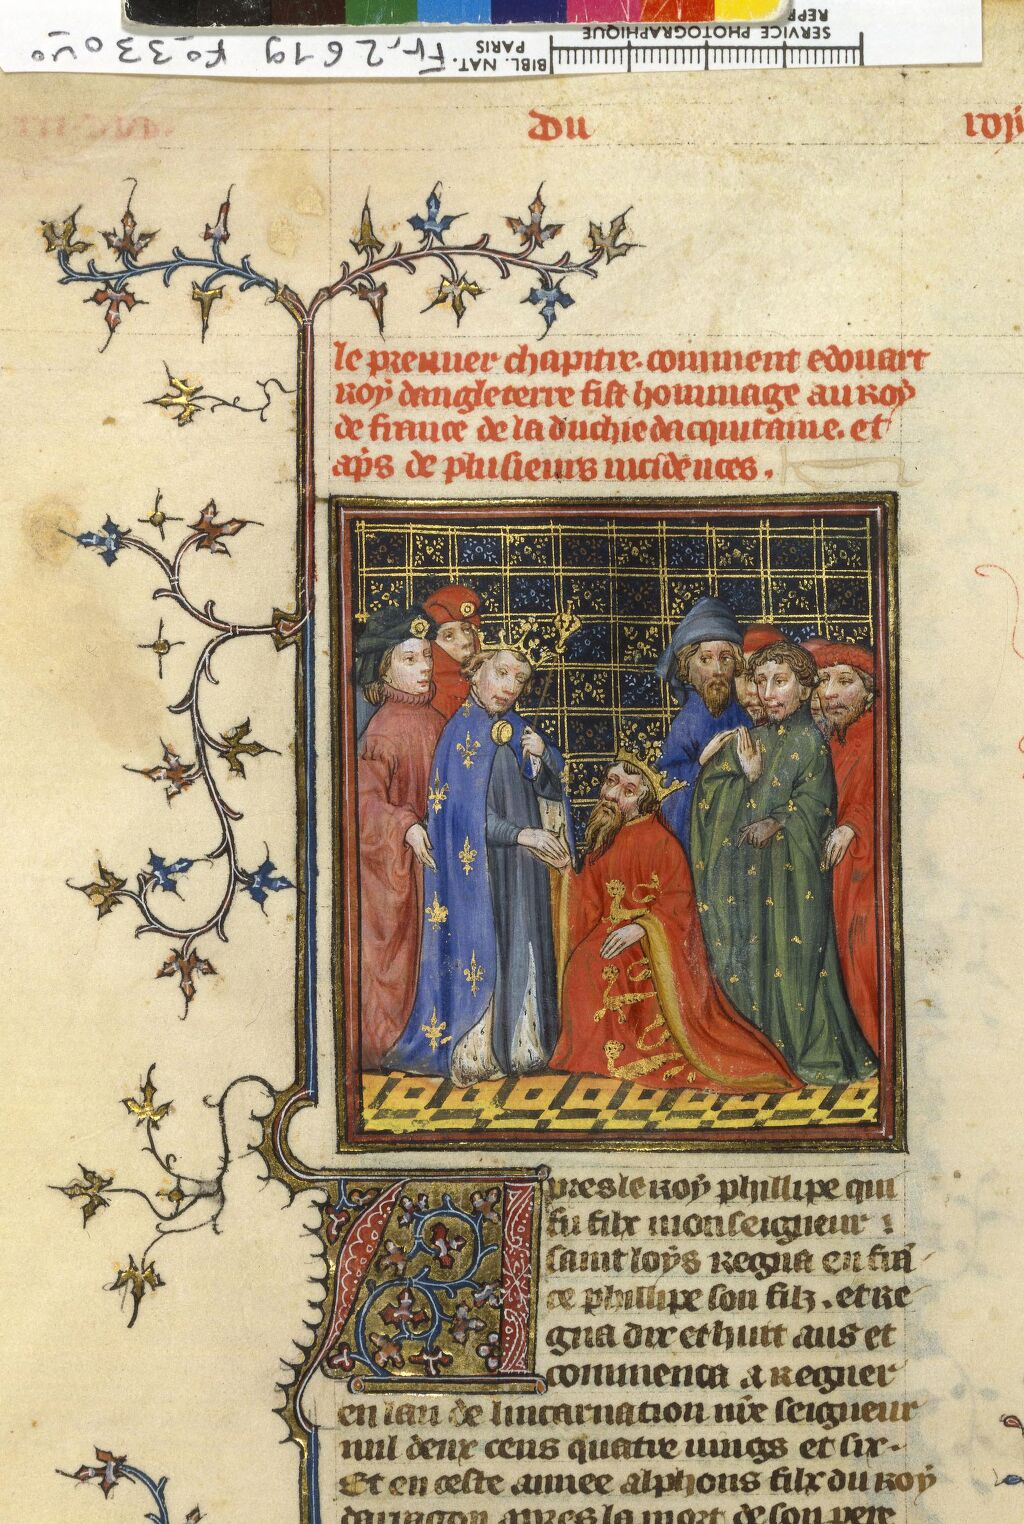 SERVICE PHOTOGRAPHIQUE
BIBL. NAT.
PARIS
Fr. 2619 Fo 330 vo
Du
roy
le premier chapitre. comment edouart
Roy dangleterre fist hommage au Roy
de france de la duchie dacquitaine. et
aps de plusieurs incidences.
Apres le roy phillipe qui
fu filx monseigneur
saint loys regna en frã
ce phillipe son filz. et re
gna dix et huit ans et
commenca a regner
en lan de lincarnation nrẽ seigneur
mil deux cens quatre vings et six.
Et en ceste annee alphons filx du roy
darragon apres la mort de son pere